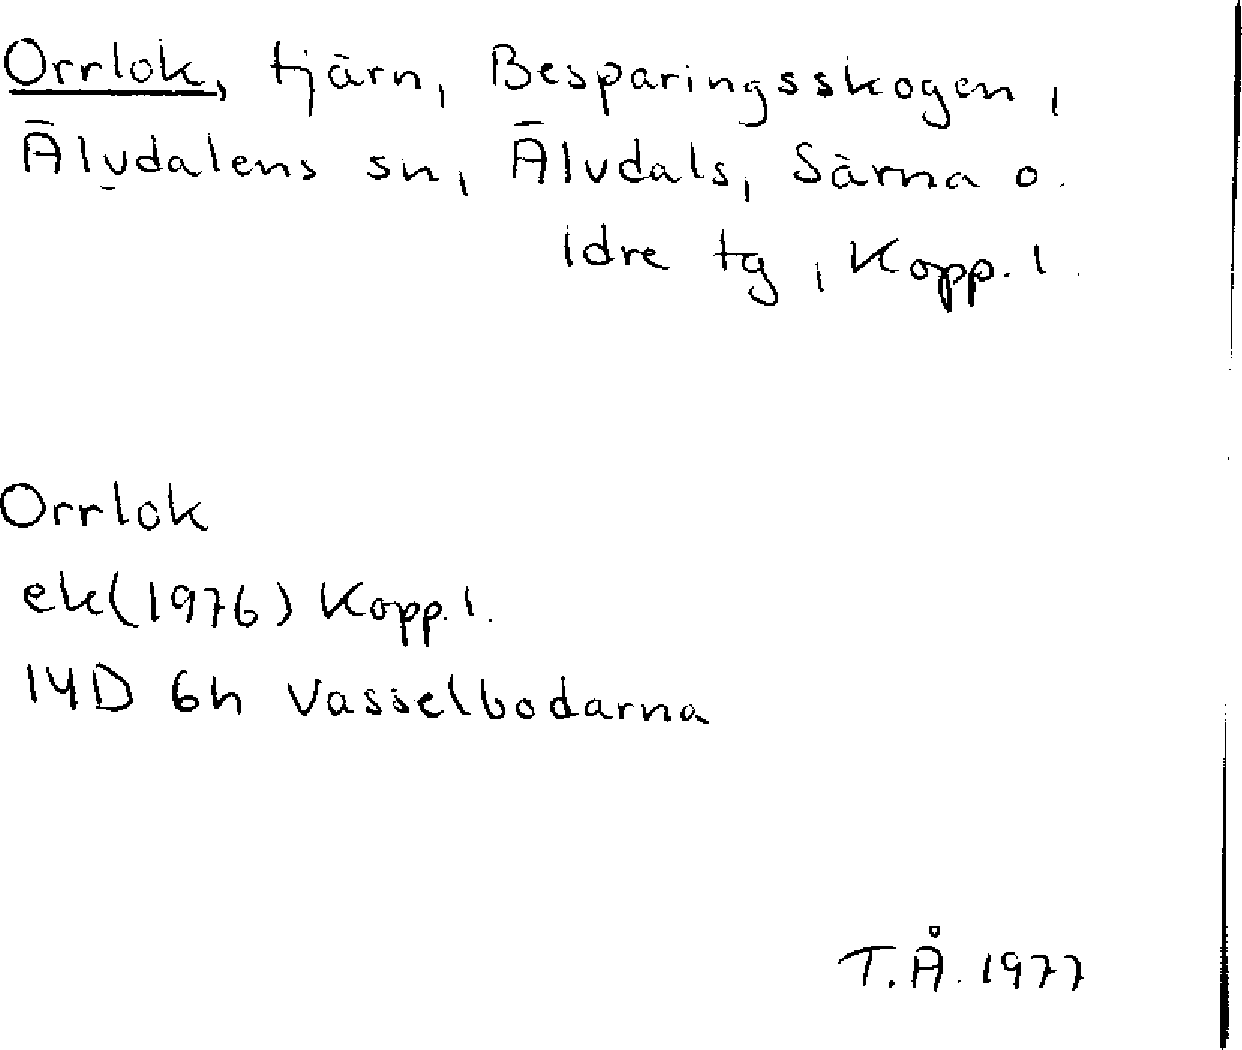 Orrlok, tjärn, Besparingsskogen,
Älvdalens sn, Älvdals, Särna o.
idre tg, Kopp. l.
Orrlok
ek(1976) Kopp. l.
14D 6h Vasselbodarna
T.Å. 1977